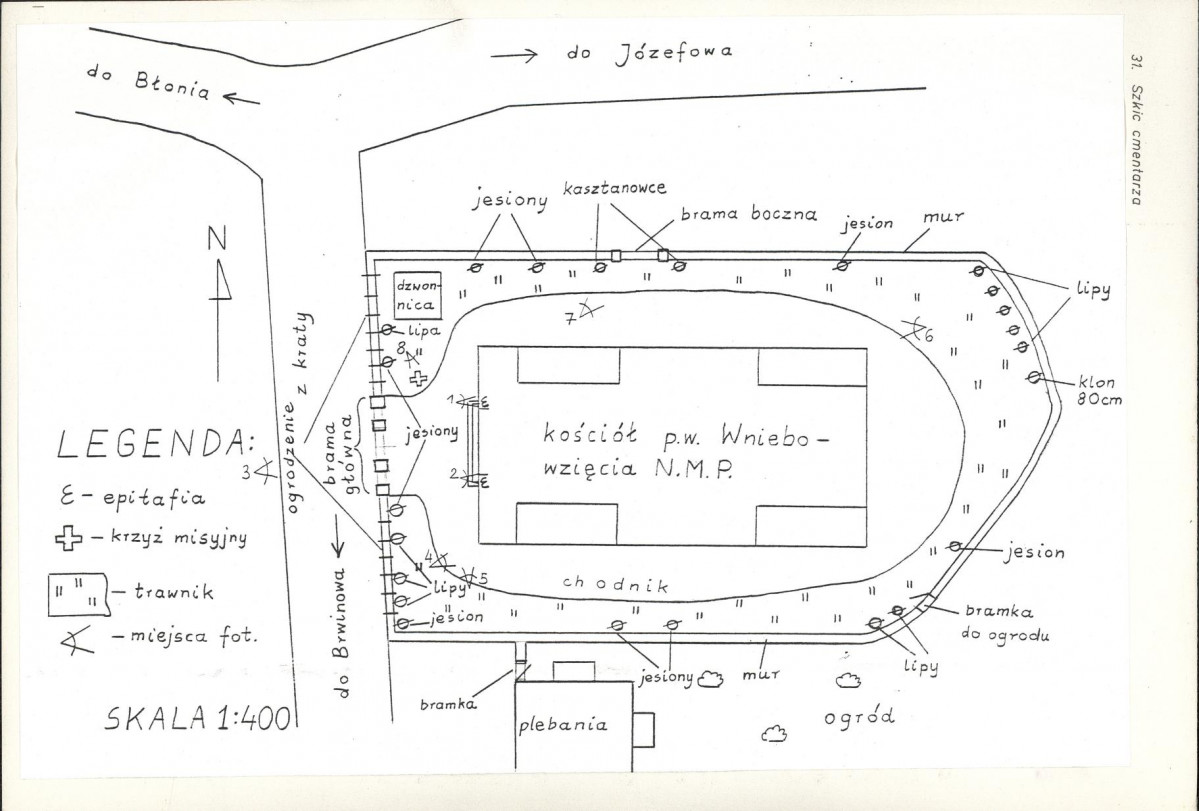 31. Szkic cmentarza
do Józefowa
do Błonia
N
jesiony
kasztanowce
brama boczna
jesion
mur
lipy
dzwon-
nica
lipa
7
6
8
klon
80cm
ogrodzenie z kraty
brama
główna
jesiony
1
ε
2
ε
kościół p.w. Wniebo-
wzięcia N.M.P.
LEGENDA:
3
ε – epitafia
– krzyż misyjny
– trawnik
– miejsca fot.
SKALA 1:400
do Brwinowa
4
5
lipy
jesion
chodnik
jesion
bramka
do ogrodu
lipy
jesiony
mur
bramka
plebania
ogród